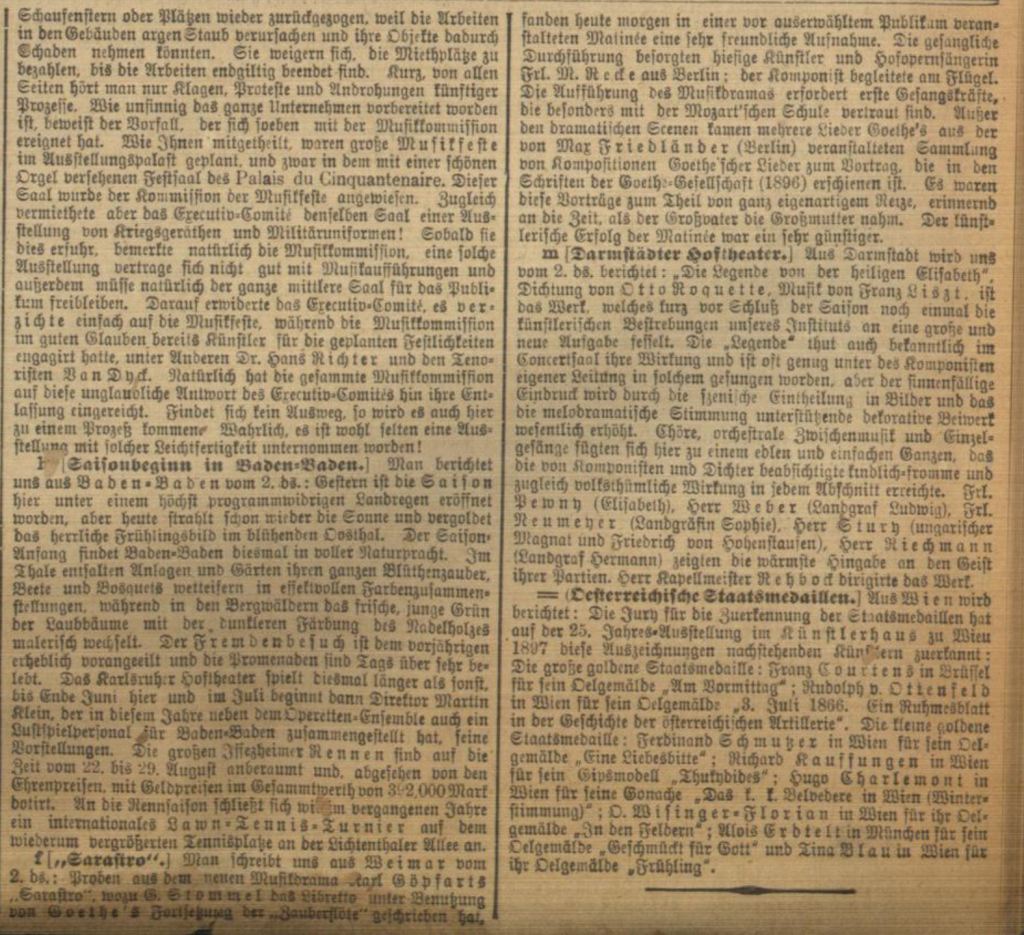 Schaufenstern oder Plätzen wieder zurückgezogen, weil die Arbeiten
in den Gebäuden argen Staub verursachen und ihre Objekte dadurch
Schaden nehmen könnten. Sie weigern sich, die Miethplätze zu
bezahlen, bis die Arbeiten endgiltig beendet sind. Kurz, von allen
Seiten hört man nur Klagen, Proteste und Androhungen künftiger
Prozesse. Wie unsinnig das ganze Unternehmen vorbereitet worden
ist, beweist der Vorfall, der sich soeben mit der Musikkommission
ereignet hat. Wie Ihnen mitgetheilt, waren große Musikfeste
im Ausstellungspalast geplant, und zwar in dem mit einer schönen
Orgel versehenen Festsaal des Palais du Cinquantenaire. Dieser
Saal wurde der Kommission der Musikfeste angewiesen. Zugleich
vermiethete aber das Executiv-Comité denselben Saal einer Aus-
stellung von Kriegsgeräthen und Militäruniformen! Sobald sie
dies erfuhr, bemerkte natürlich die Musikkommission, eine solche
Ausstellung vertrage sich nicht gut mit Musikaufführungen und
außerdem müsse natürlich der ganze mittlere Saal für das Publi-
kum freibleiben. Darauf erwiderte das Executiv-Comité, es ver-
zichte einfach auf die Musikfeste, während die Musikkommission
im guten Glauben bereits Künstler für die geplanten Festlichkeiten
engagirt hatte, unter Anderen Dr. Hans Richter und den Teno-
risten Van Dyck. Natürlich hat die gesammte Musikkommission
auf diese unglaubliche Antwort des Executiv-Comités hin ihre Ent-
lassung eingereicht. Findet sich kein Ausweg, so wird es auch hier
zu einem Prozeß kommen. Wahrlich, es ist wohl selten eine Aus-
stellung mit solcher Leichtfertigkeit unternommen worden!
[Saisonbeginn in Baden-Baden.] Man berichtet
uns aus Baden-Baden vom 2. ds.: Gestern ist die Saison
hier unter einem höchst programmwidrigen Landregen eröffnet
worden, aber heute strahlt schon wieder die Sonne und vergoldet
das herrliche Frühlingsbild im blühenden Oosthal. Der Saison-
Anfang findet Baden-Baden diesmal in voller Naturpracht. Im
Thale entfalten Anlagen und Gärten ihren ganzen Blüthenzauber,
Beete und Bosquets wetteifern in effektvollen Farbenzusammen-
stellungen, während in den Bergwäldern das frische, junge Grün
der Laubbäume mit der dunkleren Färbung des Nadelholzes
malerisch wechselt. Der Fremdenbesuch ist dem vorjährigen
erheblich vorangeeilt und die Promenaden sind Tags über sehr be-
lebt. Das Karlsruher Hoftheater spielt diesmal länger als sonst,
bis Ende Juni hier und im Juli beginnt dann Direktor Martin
Klein, der in diesem Jahre neben dem Operetten-Ensemble auch ein
Lustspielpersonal für Baden-Baden zusammengestellt hat, seine
Vorstellungen. Die großen Iffezheimer Rennen sind auf die
Zeit vom 22. bis 29. August anberaumt und, abgesehen von den
Ehrenpreisen, mit Geldpreisen im Gesammtwerth von 392,000 Mark
dotirt. An die Rennsaison schließt sich wie im vergangenen Jahre
ein internationales Lawn-Tennis-Turnier auf dem
wiederum vergrößerten Tennisplatze an der Lichtenthaler Allee an.
f [„Sarastro“.] Man schreibt uns aus Weimar vom
2. ds.: Proben aus dem neuen Musikdrama Karl Göpfarts
„Sarastro“, wozu G. Stommel das Libretto unter Benutzung
von Goethe's Fortsetzung der „Zauberflöte“ geschrieben hat,
fanden heute morgen in einer vor auserwähltem Publikum veran-
stalteten Matinée eine sehr freundliche Aufnahme. Die gesangliche
Durchführung besorgten hiesige Künstler und Hofopernsängerin
Frl. M. Recke aus Berlin; der Komponist begleitete am Flügel.
Die Aufführung des Musikdramas erfordert erste Gesangskräfte,
die besonders mit der Mozart'schen Schule vertraut sind. Außer
den dramatischen Scenen kamen mehrere Lieder Goethe's aus der
von Max Friedländer (Berlin) veranstalteten Sammlung
von Kompositionen Goethe'scher Lieder zum Vortrag, die in den
Schriften der Goethe-Gesellschaft (1896) erschienen ist. Es waren
diese Vorträge zum Theil von ganz eigenartigem Reize, erinnernd
an die Zeit, als der Großvater die Großmutter nahm. Der künst-
lerische Erfolg der Matinée war ein sehr günstiger.
m [Darmstädter Hoftheater.] Aus Darmstadt wird uns
vom 2. ds. berichtet: „Die Legende von der heiligen Elisabeth“,
Dichtung von Otto Roquette, Musik von Franz Liszt, ist
das Werk, welches kurz vor Schluß der Saison noch einmal die
künstlerischen Bestrebungen unseres Instituts an eine große und
neue Aufgabe fesselt. Die „Legende“ thut auch bekanntlich im
Concertsaal ihre Wirkung und ist oft genug unter des Komponisten
eigener Leitung in solchem gesungen worden, aber der sinnenfällige
Eindruck wird durch die szenische Eintheilung in Bilder und das
die melodramatische Stimmung unterstützende dekorative Beiwerk
wesentlich erhöht. Chöre, orchestrale Zwischenmusik und Einzel-
gesänge fügten sich hier zu einem edlen und einfachen Ganzen, das
die von Komponisten und Dichter beabsichtigte kindlich-fromme und
zugleich volksthümliche Wirkung in jedem Abschnitt erreichte. Frl.
Pewny (Elisabeth), Herr Weber (Landgraf Ludwig), Frl.
Neumeyer (Landgräfin Sophie), Herr Stury (ungarischer
Magnat und Friedrich von Hohenstaufen), Herr Riechmann
(Landgraf Hermann) zeigten die wärmste Hingabe an den Geist
ihrer Partien. Herr Kapellmeister Rehbock dirigirte das Werk.
= (Oesterreichische Staatsmedaillen.] Aus Wien wird
berichtet: Die Jury für die Zuerkennung der Staatsmedaillen hat
auf der 25. Jahres-Ausstellung im Künstlerhaus zu Wien
1897 diese Auszeichnungen nachstehenden Künstlern zuerkannt:
Die große goldene Staatsmedaille: Franz Courtens in Brüssel
für sein Oelgemälde „Am Vormittag“; Rudolph v. Ottenfeld
in Wien für sein Oelgemälde „3. Juli 1866. Ein Ruhmesblatt
in der Geschichte der österreichischen Artillerie“. Die kleine goldene
Staatsmedaille: Ferdinand Schmutzer in Wien für sein Oel-
gemälde „Eine Liebesbitte“; Richard Kauffungen in Wien
für sein Gipsmodell „Thukydides“; Hugo Charlemont in
Wien für seine Gonache „Das k. k. Belvedere in Wien (Winter-
stimmung)“; O. Wisinger-Florian in Wien für ihr Oel-
gemälde „In den Feldern“; Alois Erdtelt in München für sein
Oelgemälde „Geschmückt für Gott“ und Tina Blau in Wien für
ihr Oelgemälde „Frühling“.